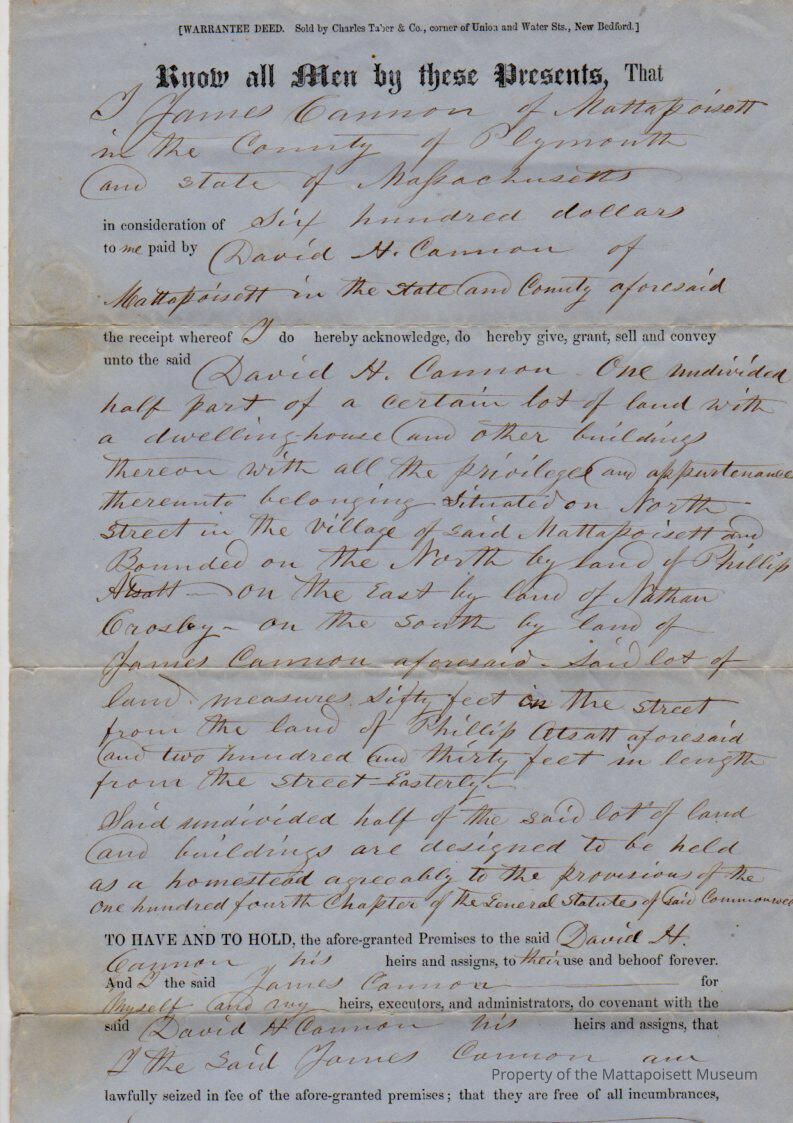 [WARRANTEE DEED. Sold by Charles Taber & Co., corner of Union and Water Sts., New Bedford.]
Know all Men by these Presents, That
I James Cannon of Mattapoisett
in the County of Plymouth
and state of Massachusetts
in consideration of Six hundred dollars
to me paid by David H. Cannon of
Mattapoisett in the State and County aforesaid
the receipt whereof I do hereby acknowledge, do hereby give, grant, sell and convey
unto the said David H. Cannon - One undivided
half part of a certain lot of land with
a dwelling-house and other buildings
thereon with all the privileges and appurtenances
thereunto belonging situated on North
Street in the Village of said Mattapoisett and
Bounded on the North by land of Phillip
Atsatt - on the East by land of Nathan
Crosby - on the South by land of
James Cannon aforesaid - Said lot of
land measures sixty feet on the street
from the land of Phillip Atsatt aforesaid
and two hundred and thirty feet in length
from the street Easterly -
Said undivided half of the said lot of land
and buildings are designed to be held
as a homestead agreeably to the provisions of the
one hundred fourth Chapter of the General Statutes of said
TO HAVE AND TO HOLD, the afore-granted Premises to the said David H.
Cannon his heirs and assigns, to their use and behoof forever.
And I the said James Cannon for
Myself and my heirs, executors, and administrators, do covenant with the
said David H Cannon his heirs and assigns, that
I the said James Cannon am
Property of the Mattapoisett Museum
lawfully seized in fee of the afore-granted premises; that they are free of all incumbrances,